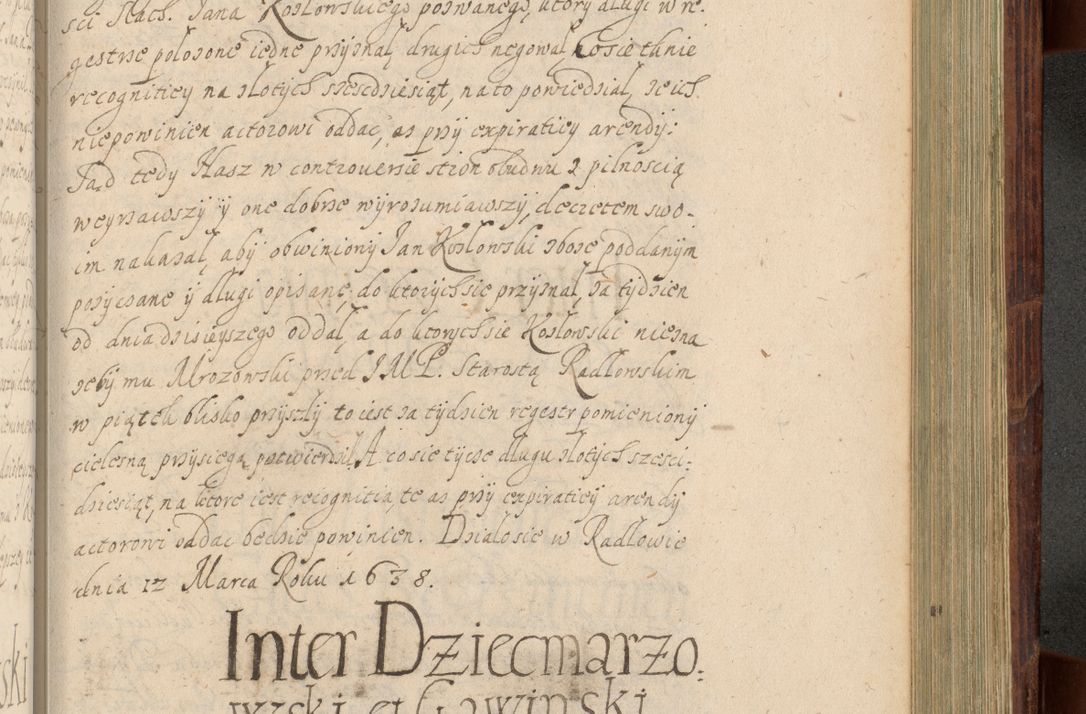 ści Slach. Jana Kozlowskiego pozwanego, ktory dlugi w re,
gestrze polozone iedne przyznał, drugich negował, co sie tknie
recognitiey na złotych szescdziesiąt, na to powiedział, że ich
niepowinien actorowi oddac, asz przy expiratiey arendy:
Sąd tedy Nasz w controuersie stron obudwu z pilnoscią
weyrzawszy y one dobrze wyrozumiawszy, decretem swo-
im nakazał, aby obwiniony Jan Kozlowski zboze poddanym
pozyczane y dlugi opisane, do ktorych sie przyznał, za tydzien
od dnia dzisieyszego oddał, a do ktorych sie Kozlowski niezna
zeby mu Mrozowski przed JMP. Starostą Radlowskim
w piątek blisko przyszly to iest za tydzien regestr pomieniony
cielesną przysięgą potwierdził. A co sie tycze dlugu złotych szesci,
dziesiąt, na ktore iest recognitia, te asz przy expiratiey arendy
actorowi oddac będzie powinien. Działo sie w Radlowie
dnia 12 Marca Roku 1638.
Inter Dziecmarzo,
wski et Gawinski